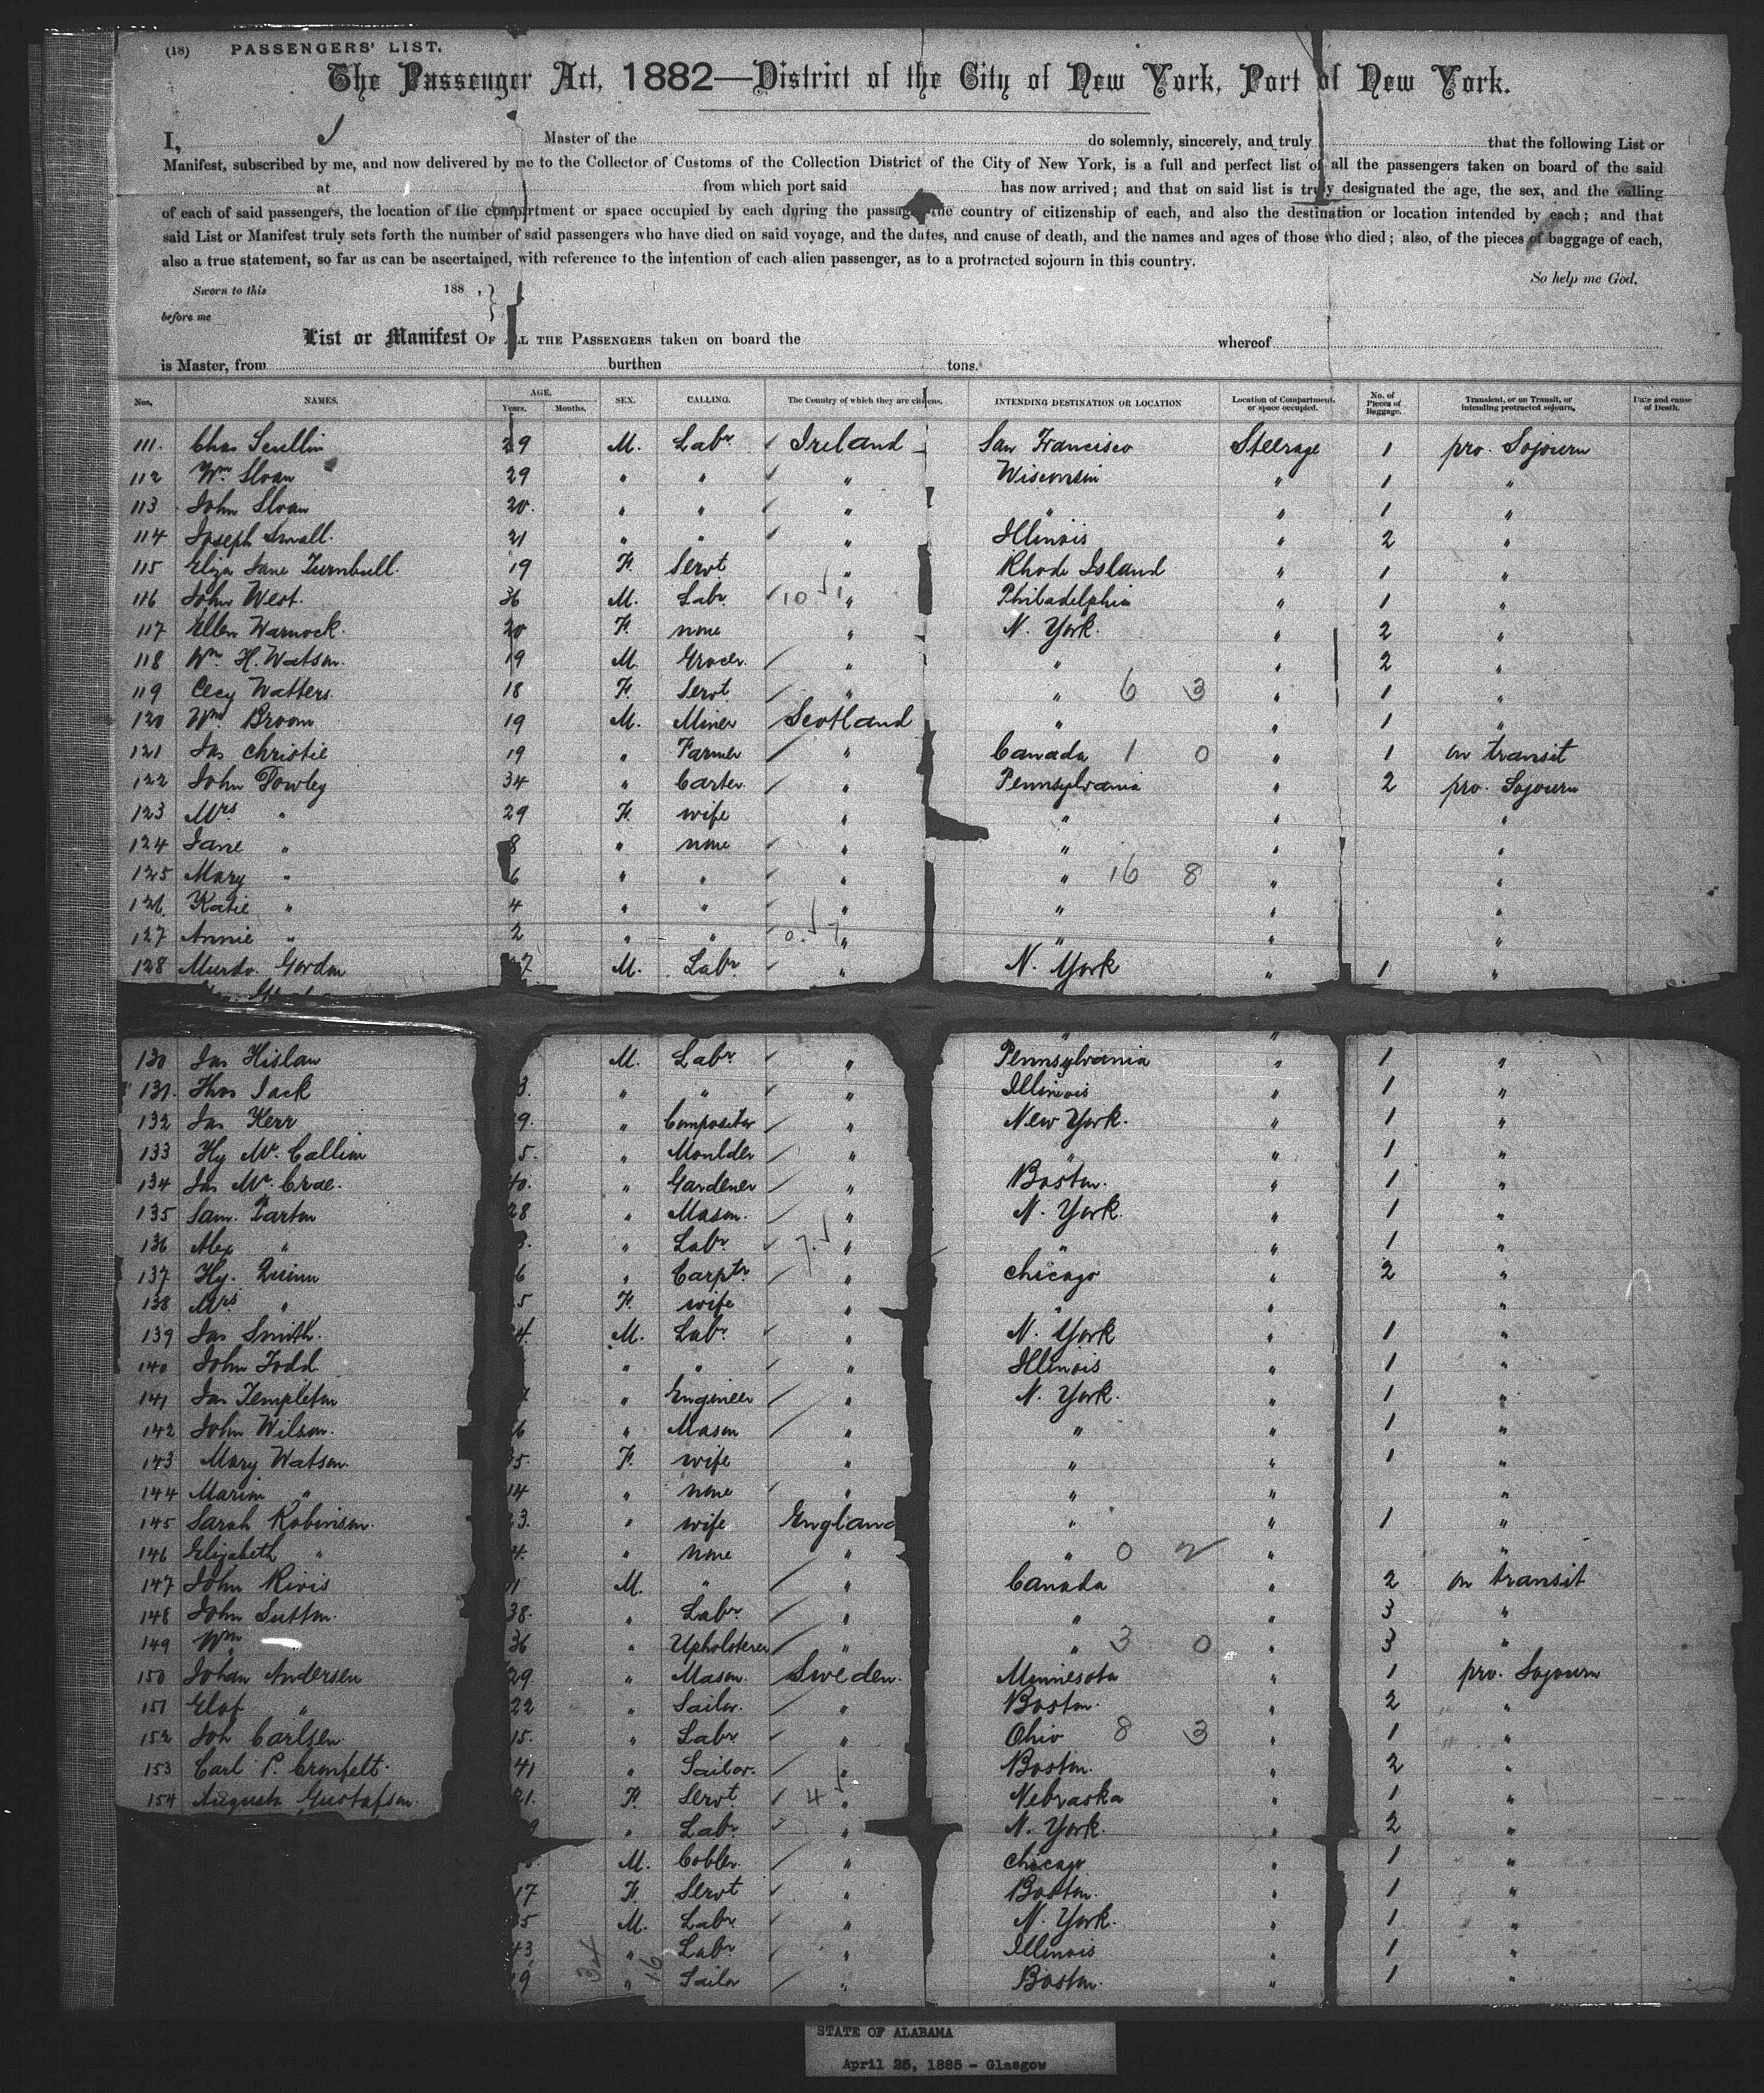 (18) PASSENGERS' LIST.
The Passenger Act, 1882—District of the City of New York, Port of New York.
I, Master of the do solemnly, sincerely, and truly that the following List or
Manifest, subscribed by me, and now delivered by me to the Collector of Customs of the Collection District of the City of New York, is a full and perfect list of all the passengers taken on board of the said
at from which port said has now arrived; and that on said list is truly designated the age, the sex, and the calling
of each of said passengers, the location of the compartment or space occupied by each during the passage, the country of citizenship of each, and also the destination or location intended by each; and that
said List or Manifest truly sets forth the number of said passengers who have died on said voyage, and the dates, and cause of death, and the names and ages of those who died; also, of the pieces of baggage of each,
also a true statement, so far as can be ascertained, with reference to the intention of each alien passenger, as to a protracted sojourn in this country.
So help me God.
Sworn to this 188 , }
before me
List or Manifest OF ALL THE PASSENGERS taken on board the whereof
is Master, from burthen tons.
Nos. NAMES. AGE. Years. Months. SEX. CALLING. The Country of which they are citizens. INTENDING DESTINATION OR LOCATION Location of Compartment or space occupied. No. of Pieces of Baggage. Transient, or on Transit, or intending protracted sojourn. Date and cause of Death.
111. Chas Scullin 29 M. Labr Ireland San Francisco Steerage 1 pro. Sojourn
112 Wm Sloan 29 " " " Wisconsin " 1 "
113 John Sloan 20. " " " " " 1 "
114 Joseph Small. 21 " " " Illinois " 2 "
115 Eliza Jane Turnbull. 19 F. Servt " Rhode Island " 1 "
116 John West. 36 M. Labr 10 1 " Philadelphia " 1 "
117 Ellen Warnock. 20 F. none " N. York. " 2 "
118 Wm H. Watson. 19 M. Grocer. " " " 2 "
119 Cecy Watters. 18 F. Servt " " 6 3 " 1 "
120 Wm Broom 19 M. Miner Scotland " " 1 "
121 Jas Christie 19 " Farmer " Canada 1 0 " 1 on transit
122 John Dowley 34 " Carter. " Pennsylvania " 2 pro. Sojourn
123 Mrs " 29 F. wife " " " "
124 Jane " 8 " none " " " "
125 Mary " 6 " " " " 16 8 " "
126 Katie " 4 " " " " " "
127 Annie " 2 " " 0. 7 " " " "
128 Murdo. Gordon 7 M. Labr " N. York " 1 "
130 Jas Hislaw M. Labr " Pennsylvania " 1 "
131. Thos Jack 3. " " " Illinois " 1 "
132 Jas Kerr 9. " Compositor " New York. " 1 "
133 Hy Mc Callim 5. " Moulder " " " 1 "
134 Jas Mc Crae. 40. " Gardener " Boston. " 1 "
135 Sam. Parton 28 " Mason. " N. York. " 1 "
136 Alex " 3. " Labr 7. " " " 1 "
137 Hy. Quinn 6 " Carptr " Chicago " 2 "
138 Mrs " 5 F. wife " " " "
139 Jas Smith. 24. M. Labr " N. York " 1 "
140 John Todd " " " Illinois " 1 "
141 Jas Templeton 7 " Engineer " N. York. " 1 "
142 John Wilson. 6 " Mason " " " 1 "
143 Mary Watson. 35. F. wife " " " 1 "
144 Marion " 14 " none " " " "
145 Sarah Robinson. 23. " wife England " " 1 "
146 Elizabeth " 4. " none " " 0 2 " "
147 John Rivis 1 M. " " Canada " 2 on transit
148 John Sutton. 38. " Labr " " " 3 "
149 Wm 36 " Upholsterer " " 3 0 " 3 "
150 Johan Andersen 29. " Mason. Sweden. Minnesota " 1 pro. Sojourn
151 Elof " 22 " Sailor. " Boston. " 2 "
152 Joh Carlsen 15. " Labr " Ohio 8 3 " 1 "
153 Carl P. Cronfelt. 41 " Sailor. " Boston. " 2 "
154 Augusta Gustafson. 21. F. Servt 4 " Nebraska " 1 "
9 " Labr " N. York. " 2 "
M. Cobler. " Chicago " 1 "
17 F. Servt " Boston. " 1 "
5 M. Labr " N. York. " 1 "
43 " Labr " Illinois " 1 "
9 34 " 16 Sailor " Boston. " 1 "
STATE OF ALABAMA
April 25, 1885 - Glasgow